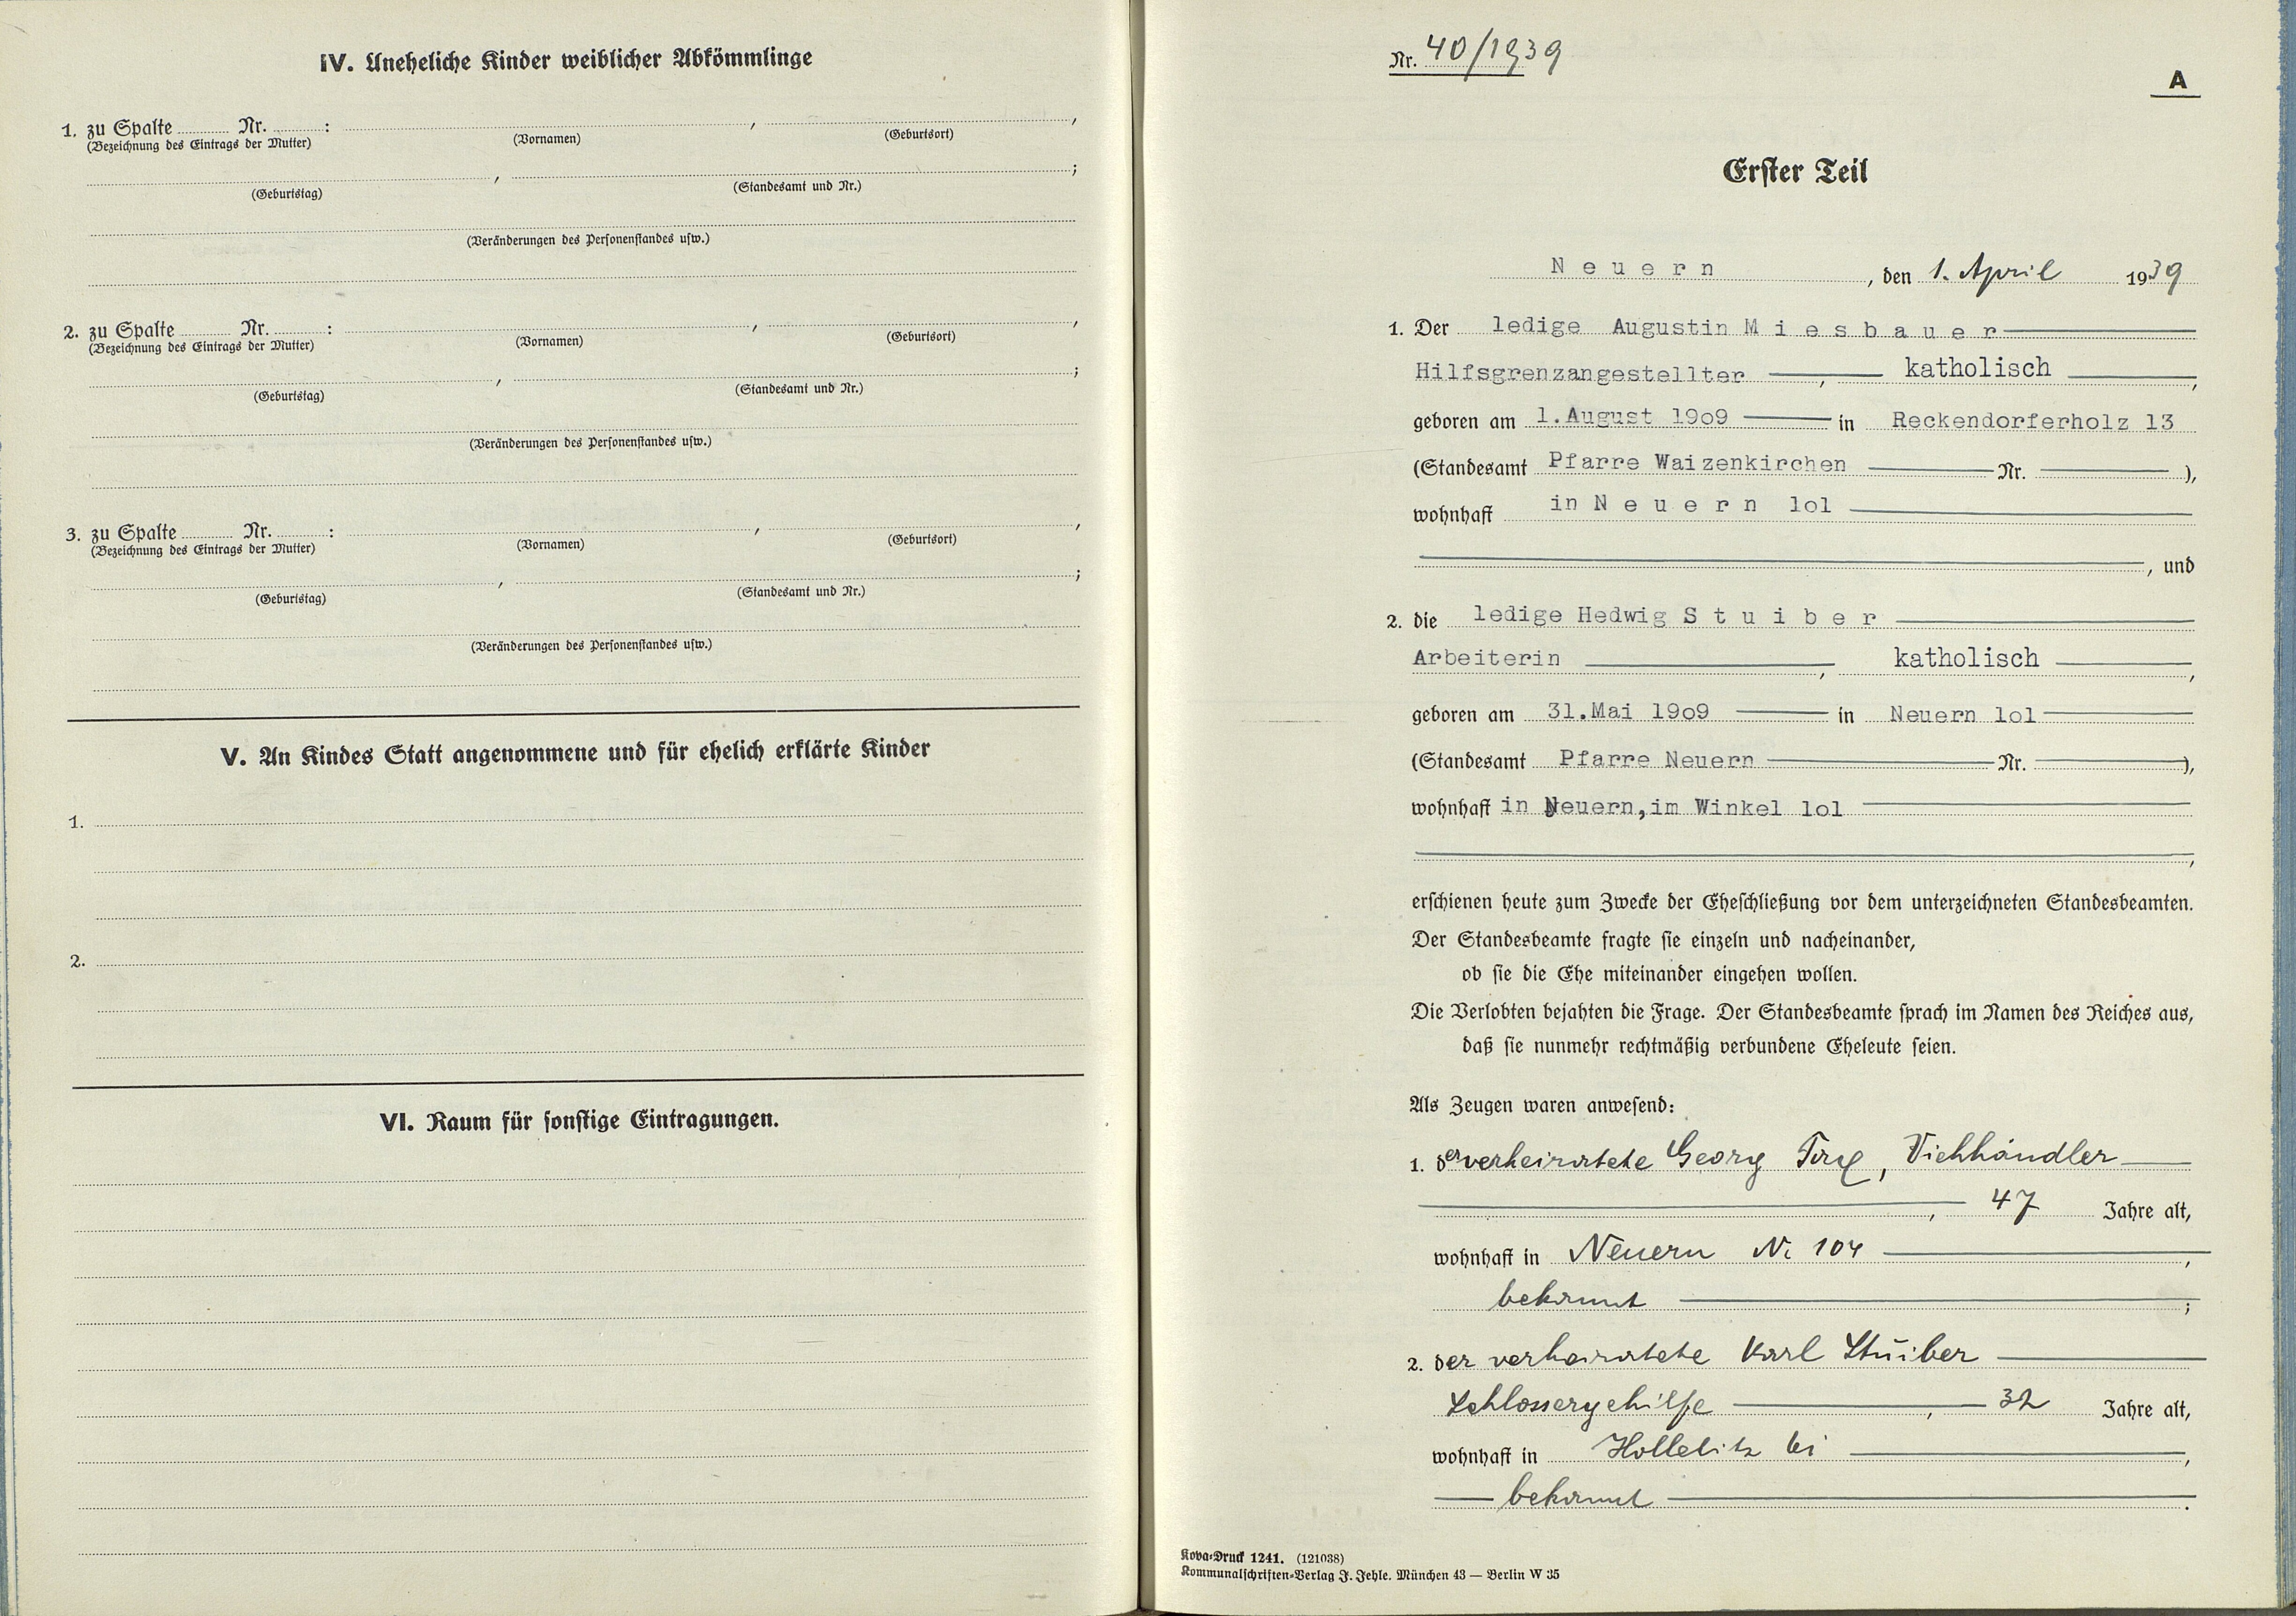 IV. Uneheliche Kinder weiblicher Abkömmlinge
1. zu Spalte ........ Nr. ........ : ........ , ........ ,
(Bezeichnung des Eintrags der Mutter) (Vornamen) (Geburtsort)
........ , ........ ;
(Geburtstag) (Standesamt und Nr.)
(Veränderungen des Personenstandes usw.)
2. zu Spalte ........ Nr. ........ : ........ , ........ ,
(Bezeichnung des Eintrags der Mutter) (Vornamen) (Geburtsort)
........ , ........ ;
(Geburtstag) (Standesamt und Nr.)
(Veränderungen des Personenstandes usw.)
3. zu Spalte ........ Nr. ........ : ........ , ........ ,
(Bezeichnung des Eintrags der Mutter) (Vornamen) (Geburtsort)
........ , ........ ;
(Geburtstag) (Standesamt und Nr.)
(Veränderungen des Personenstandes usw.)
V. An Kindes Statt angenommene und für ehelich erklärte Kinder
1.
2.
VI. Raum für sonstige Eintragungen.
Nr. 40/1939
A
Erster Teil
N e u e r n , den 1. April 1939
1. Der ledige Augustin M i e s b a u e r
Hilfsgrenzangestellter , katholisch ,
geboren am 1.August 19o9 in Reckendorferholz 13
(Standesamt Pfarre Waizenkirchen Nr. ),
wohnhaft in N e u e r n lol
, und
2. die ledige Hedwig S t u i b e r
Arbeiterin , katholisch ,
geboren am 31.Mai 19o9 in Neuern lol
(Standesamt Pfarre Neuern Nr. ),
wohnhaft in Neuern,im Winkel lol
,
erschienen heute zum Zwecke der Eheschließung vor dem unterzeichneten Standesbeamten.
Der Standesbeamte fragte sie einzeln und nacheinander,
ob sie die Ehe miteinander eingehen wollen.
Die Verlobten bejahten die Frage. Der Standesbeamte sprach im Namen des Reiches aus,
daß sie nunmehr rechtmäßig verbundene Eheleute seien.
Als Zeugen waren anwesend:
1. der verheiratete Georg , Viehhändler
, 47 Jahre alt,
wohnhaft in Neuern Nr 104 ,
bekannt ;
2. der verheiratete Karl Stuiber
Schlossergehilfe , 32 Jahre alt,
wohnhaft in ,
bekannt .
Kova-Druck 1241. (121038)
Kommunalschriften-Verlag J. Jehle. München 43 — Berlin W 35